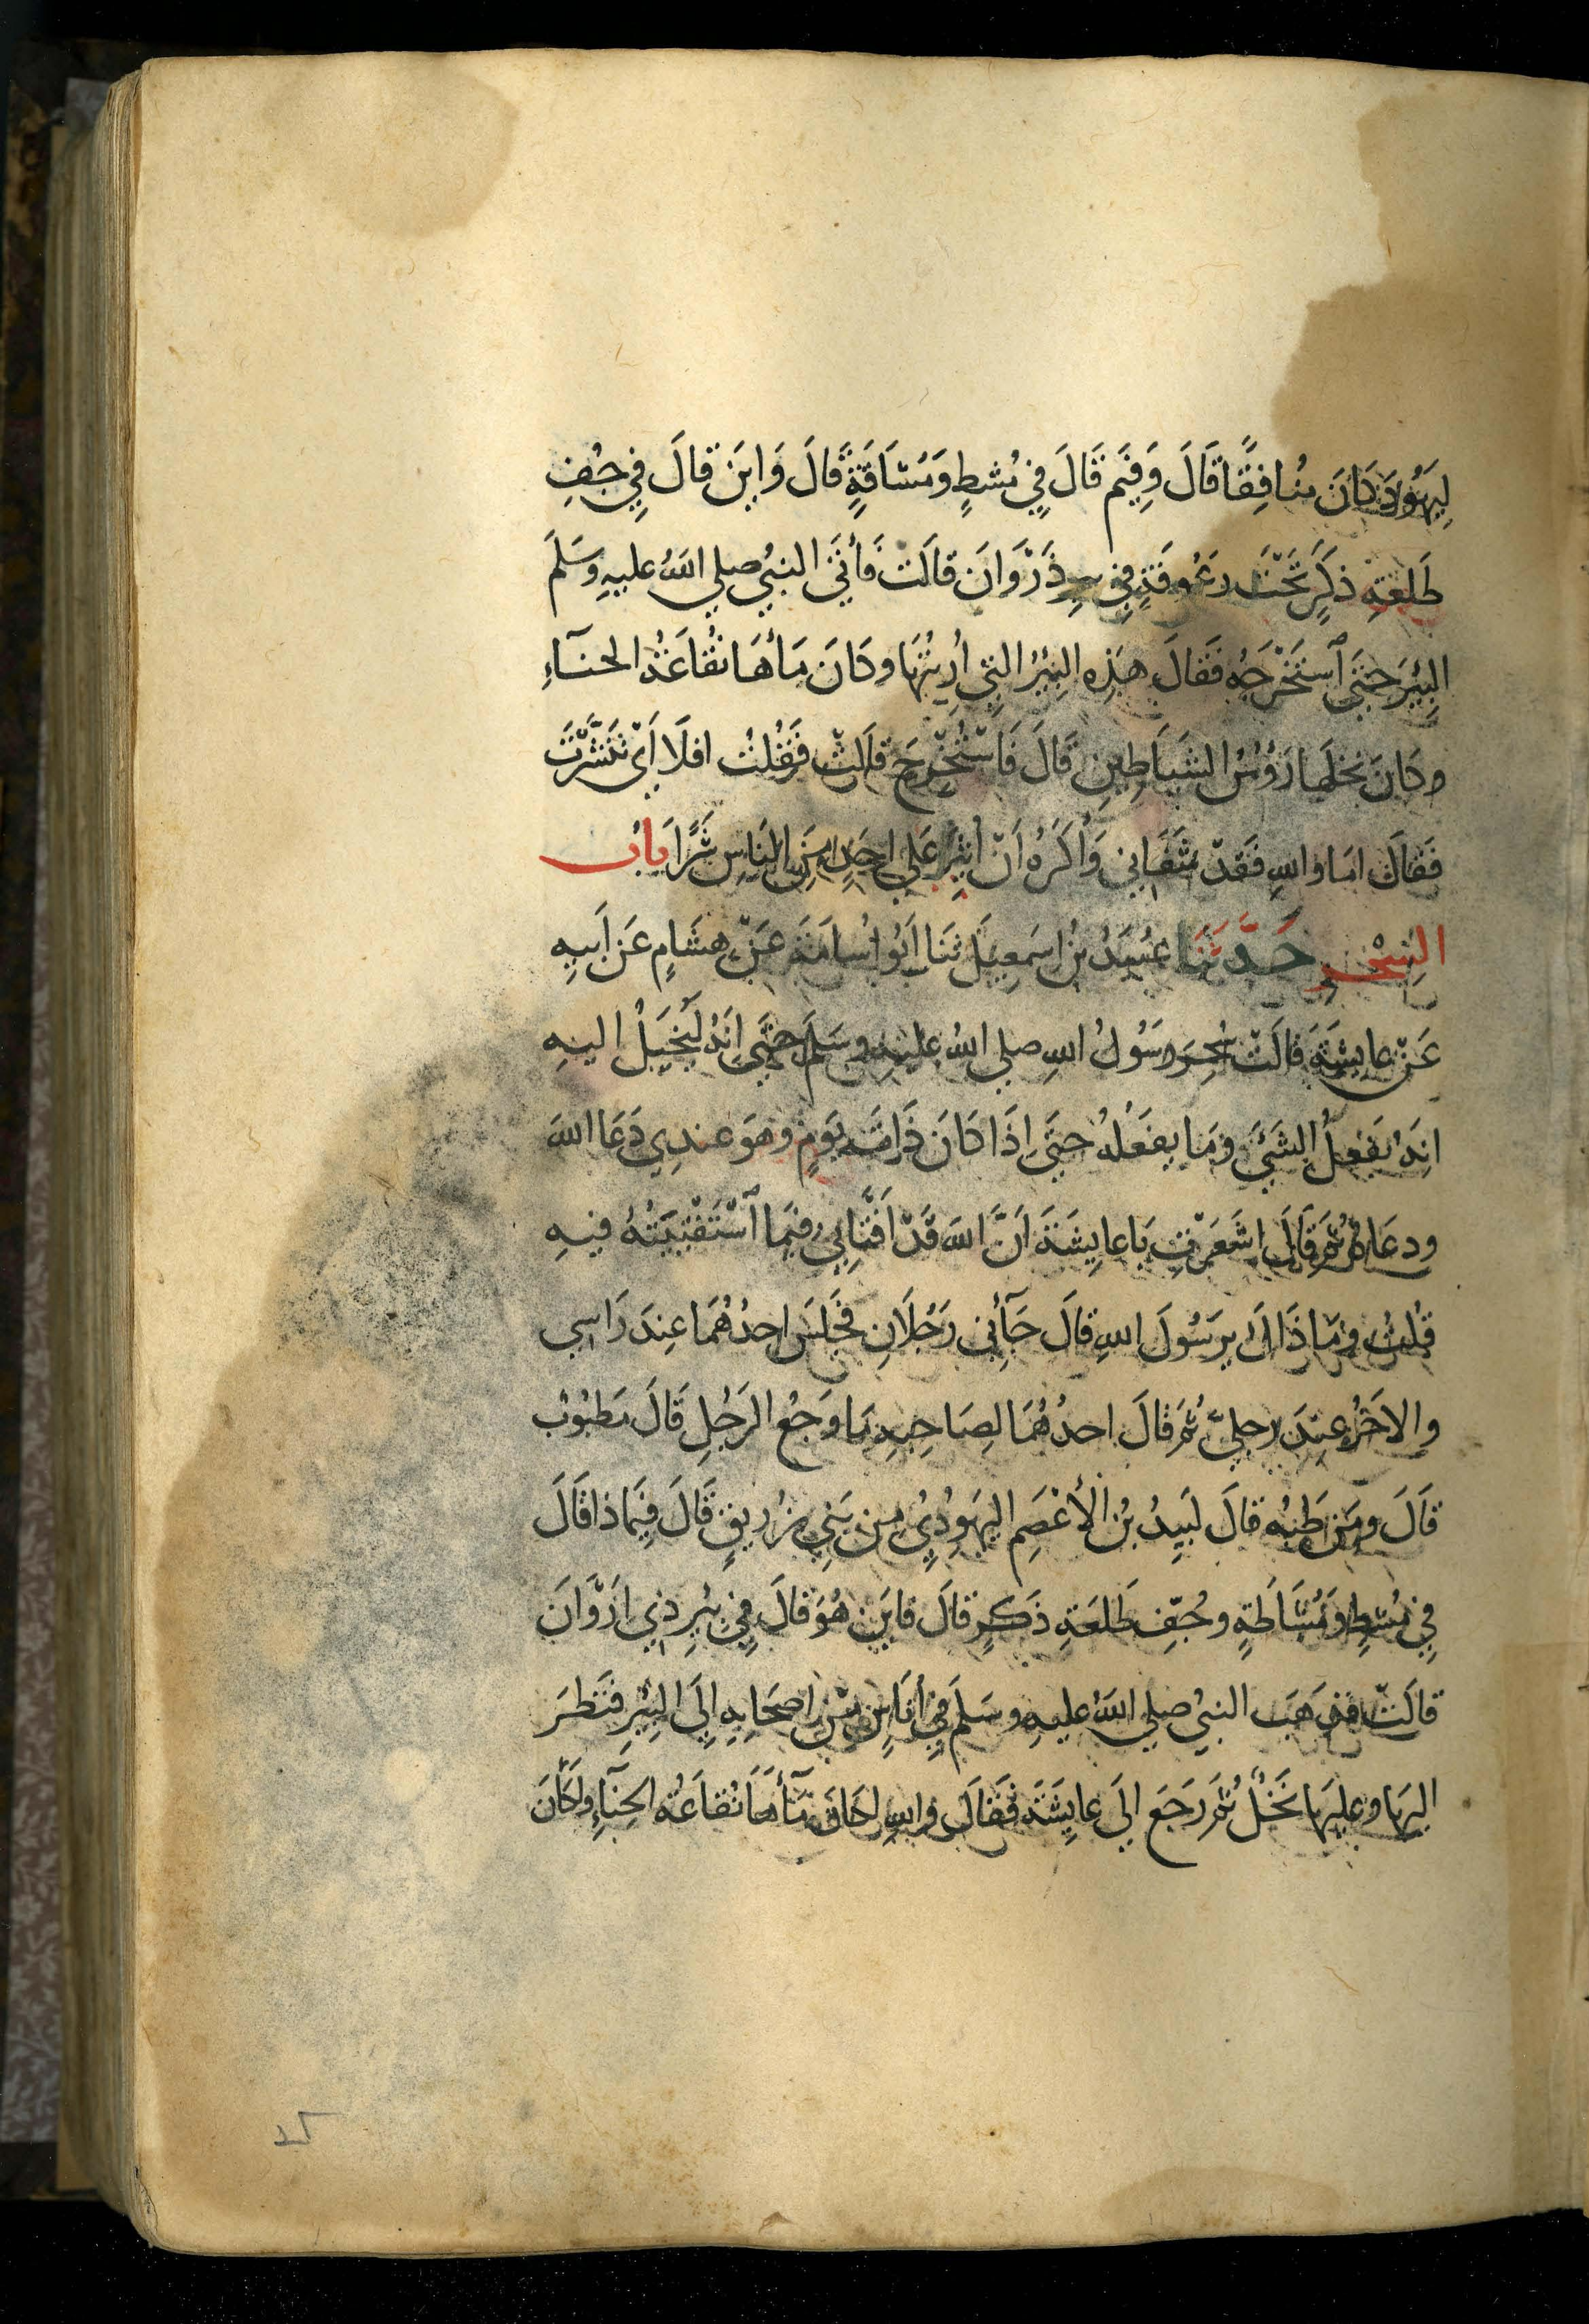 لِيَهُودَ كَانَ مُنَافِقًا قَالَ وَفِيمَ قَالَ فِي مُشْطٍ وَمُشَاقَةٍ قَالَ وَايَنَ قَالَ فِي جُفِ
طَلْعَةِ ذَكَرٍ تَحْتَ رَعُوفَةٍ فِي بِيرِ ذَرْوَانَ قَالَتْ فَأتَى النبيُ صلي اللهُ عليهِ وَسَلَمَ
البِيْرَ حَتَى ٱسْتَخْرَجَهُ فَقَالَ هَذِهِ البِيْرُ التِي أُرِيتُهَا وكَانَ مَأهَا نُقَاعَةُ الحنآءِ
وكَانَ نخلَهَا رَؤُسُ الشَيَاطِينِ قَالَ فَاسْتُخْرِجَ قَالَتْ فَقُلْتُ افلَا اَيْ تَنَشَّرْتَ
فَقَالَ امَا واللهِ فَقَدْ شَفَانِي وَأَكْرَهُ اَنْ أُثِيرَ عَلي احَدٍ مِنَ النَاسِ شَرًا بابُ
السِحْرِ حَدَّثَنَا عُبَيدُ بْنُ اسمعِيلَ ثنَا اَبُو اُسَامَةَ عَنْ هِشَامٍ عَن اَبيهِ
عَنْ عايِشَةَ قَالَتْ سُحِرَ رسُولُ اللهِ صلي اللهُ عليهِ وسَلَمَ حتَى اِنَهُ لَيُخَيَلُ اليهِ
انَهُ يَفْعَلُ الشَيْئَ ومَا يفعَلُهُ حتَى اِذَا كَانَ ذَاتَ يَومٍ وهوَ عندِي دَعَا اللهَ
ودعَاهُ ثُمَ قَالَ اشَعَرْتِ يَا عايِشَةَ اَنَّ اللهَ قَدْ اَفْتَانِي فِيمَا ٱسْتَفْتَيْتُهُ فيهِ
قُلْتُ ومَا ذَاكَ يرَسُولَ اللهِ قالَ جَآنِي رَجُلَانِ فَجَلَسَ احدُهُمَا عِندَ رَاسِي
والاخَرُ عِنْدَ رجلِيَّ ثُمَ قَالَ احدُهُمَا لِصَاحِبِهِ مَا وَجَعُ الرَجُلِ قَالَ مَطبُوبُ
قَالَ ومَن طَبَهُ قالَ لَبِيدُ بْنُ الأعْصَمِ اليَهُودِيُ مِن بَنِي زُرَيقٍ قَالَ فِيمَا ذَا قَالَ
فِي مُشطٍ ومُشَاطَةٍ وجُفِّ طَلعَةِ ذَكَرٍ قَالَ فايَنَ هُوَ قَالَ فِي بِيرِ ذِي اَرْوَانَ
قالَتْ فذهَبَ النبيُ صلي اللهُ عليهِ وسَلَمَ فِي أُنَاسٍ مِنْ اصحَابِهِ اِلَى البِيْرِ فنَظَرَ
اليهَا وعليهَا نَخْلٌ ثُمَ رَجَعَ اِلَى عايِشَةَ فَقَالَ واللهِ لَكَانَ مَآأَهَا نُقَاعَةُ الحِنآءِ ولَكَأنَ